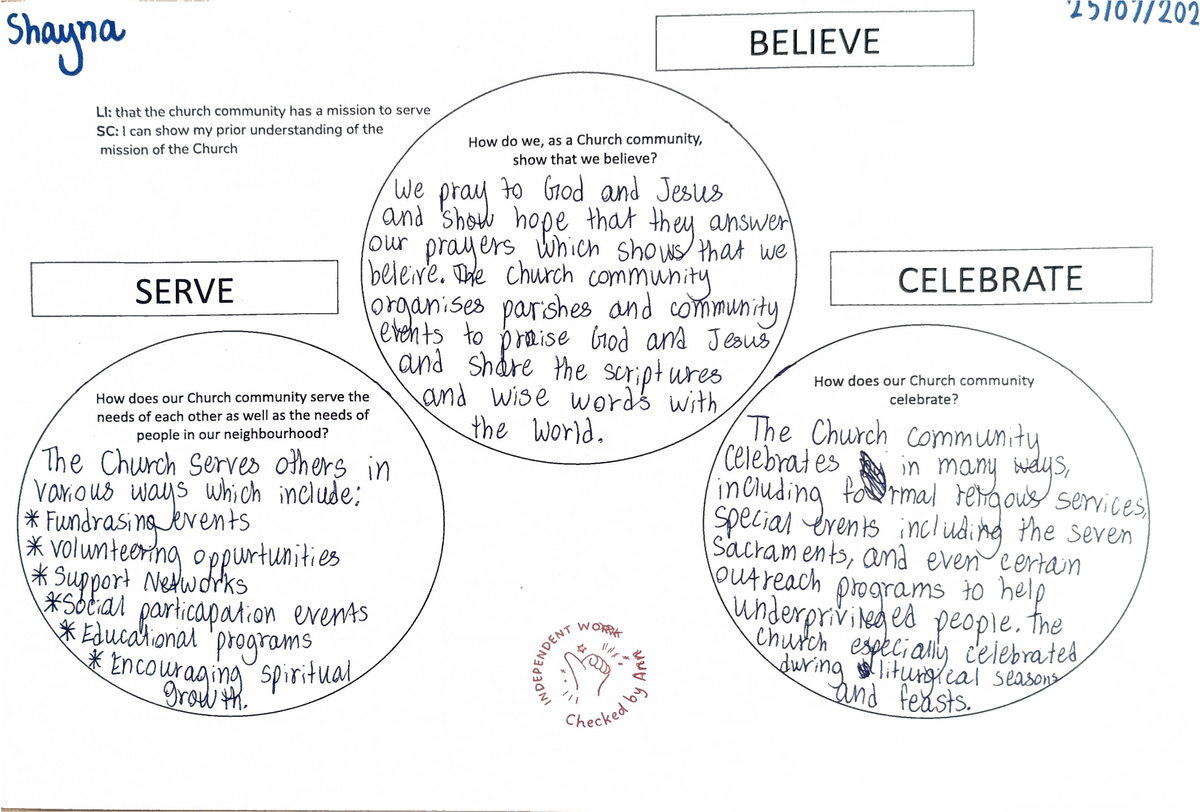 Shayna
25/07/202
BELIEVE
LI: that the church community has a mission to serve
SC: I can show my prior understanding of the
mission of the Church
How do we, as a Church community,
show that we believe?
We pray to God and Jesus
and show hope that they answer
our prayers which shows that we
beleive. The church community
organises parishes and community
events to praise God and Jesus
and share the scriptures
and wise words with
the world.
SERVE
How does our Church community serve the
needs of each other as well as the needs of
people in our neighbourhood?
The Church serves others in
various ways which include:
* Fundrasing events
* volunteering oppurtunities
* Support Networks
* Social particapation events
* Educational programs
* Encouraging spiritual
growth.
CELEBRATE
How does our Church community
celebrate?
The Church community
celebrates in many ways,
including formal religous services,
special events including the seven
sacraments, and even certain
outreach programs to help
underprivileged people. The
church especially celebrated
during liturgical seasons
and feasts.
INDEPENDENT WORK
Checked by